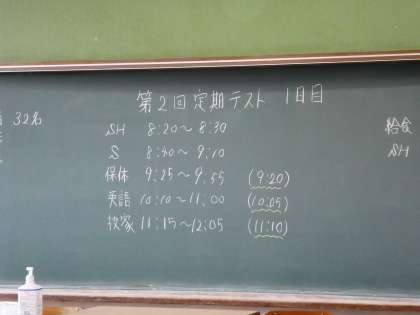 第2回定期テスト 1日目
32名
SH 8:20～8:30
S 8:40～9:10
保体 9:25～9:55 (9:20)
英語 10:10～11:00 (10:05)
技家 11:15～12:05 (11:10)
給食
SH